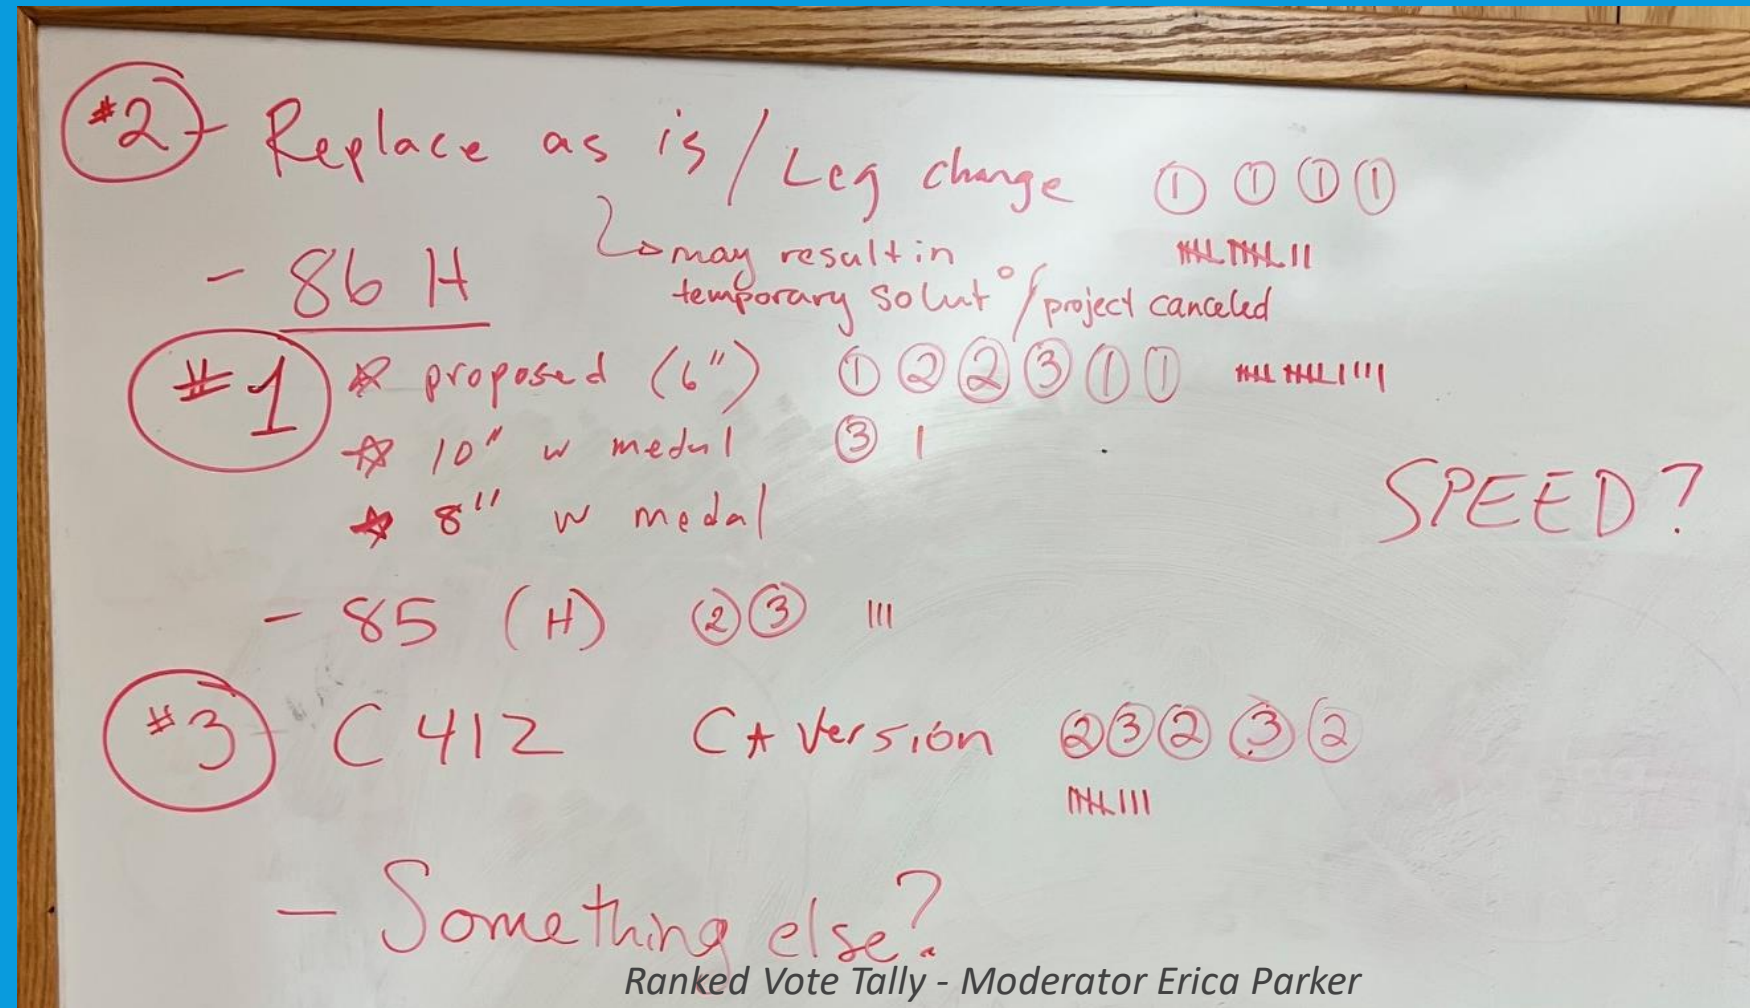 #2 - Replace as is / Leg change ① ① ① ①
may result in
- 86 H temporary solut° / project canceled
#1 ☆ proposed (6") ① ② ② ③ ① ①
☆ 10" w medal ③ |
☆ 8" w medal
SPEED?
- 85 (H) ② ③ |||
#3 - C412 C☆ Version ② ③ ② ③ ②
- Something else?
Ranked Vote Tally - Moderator Erica Parker